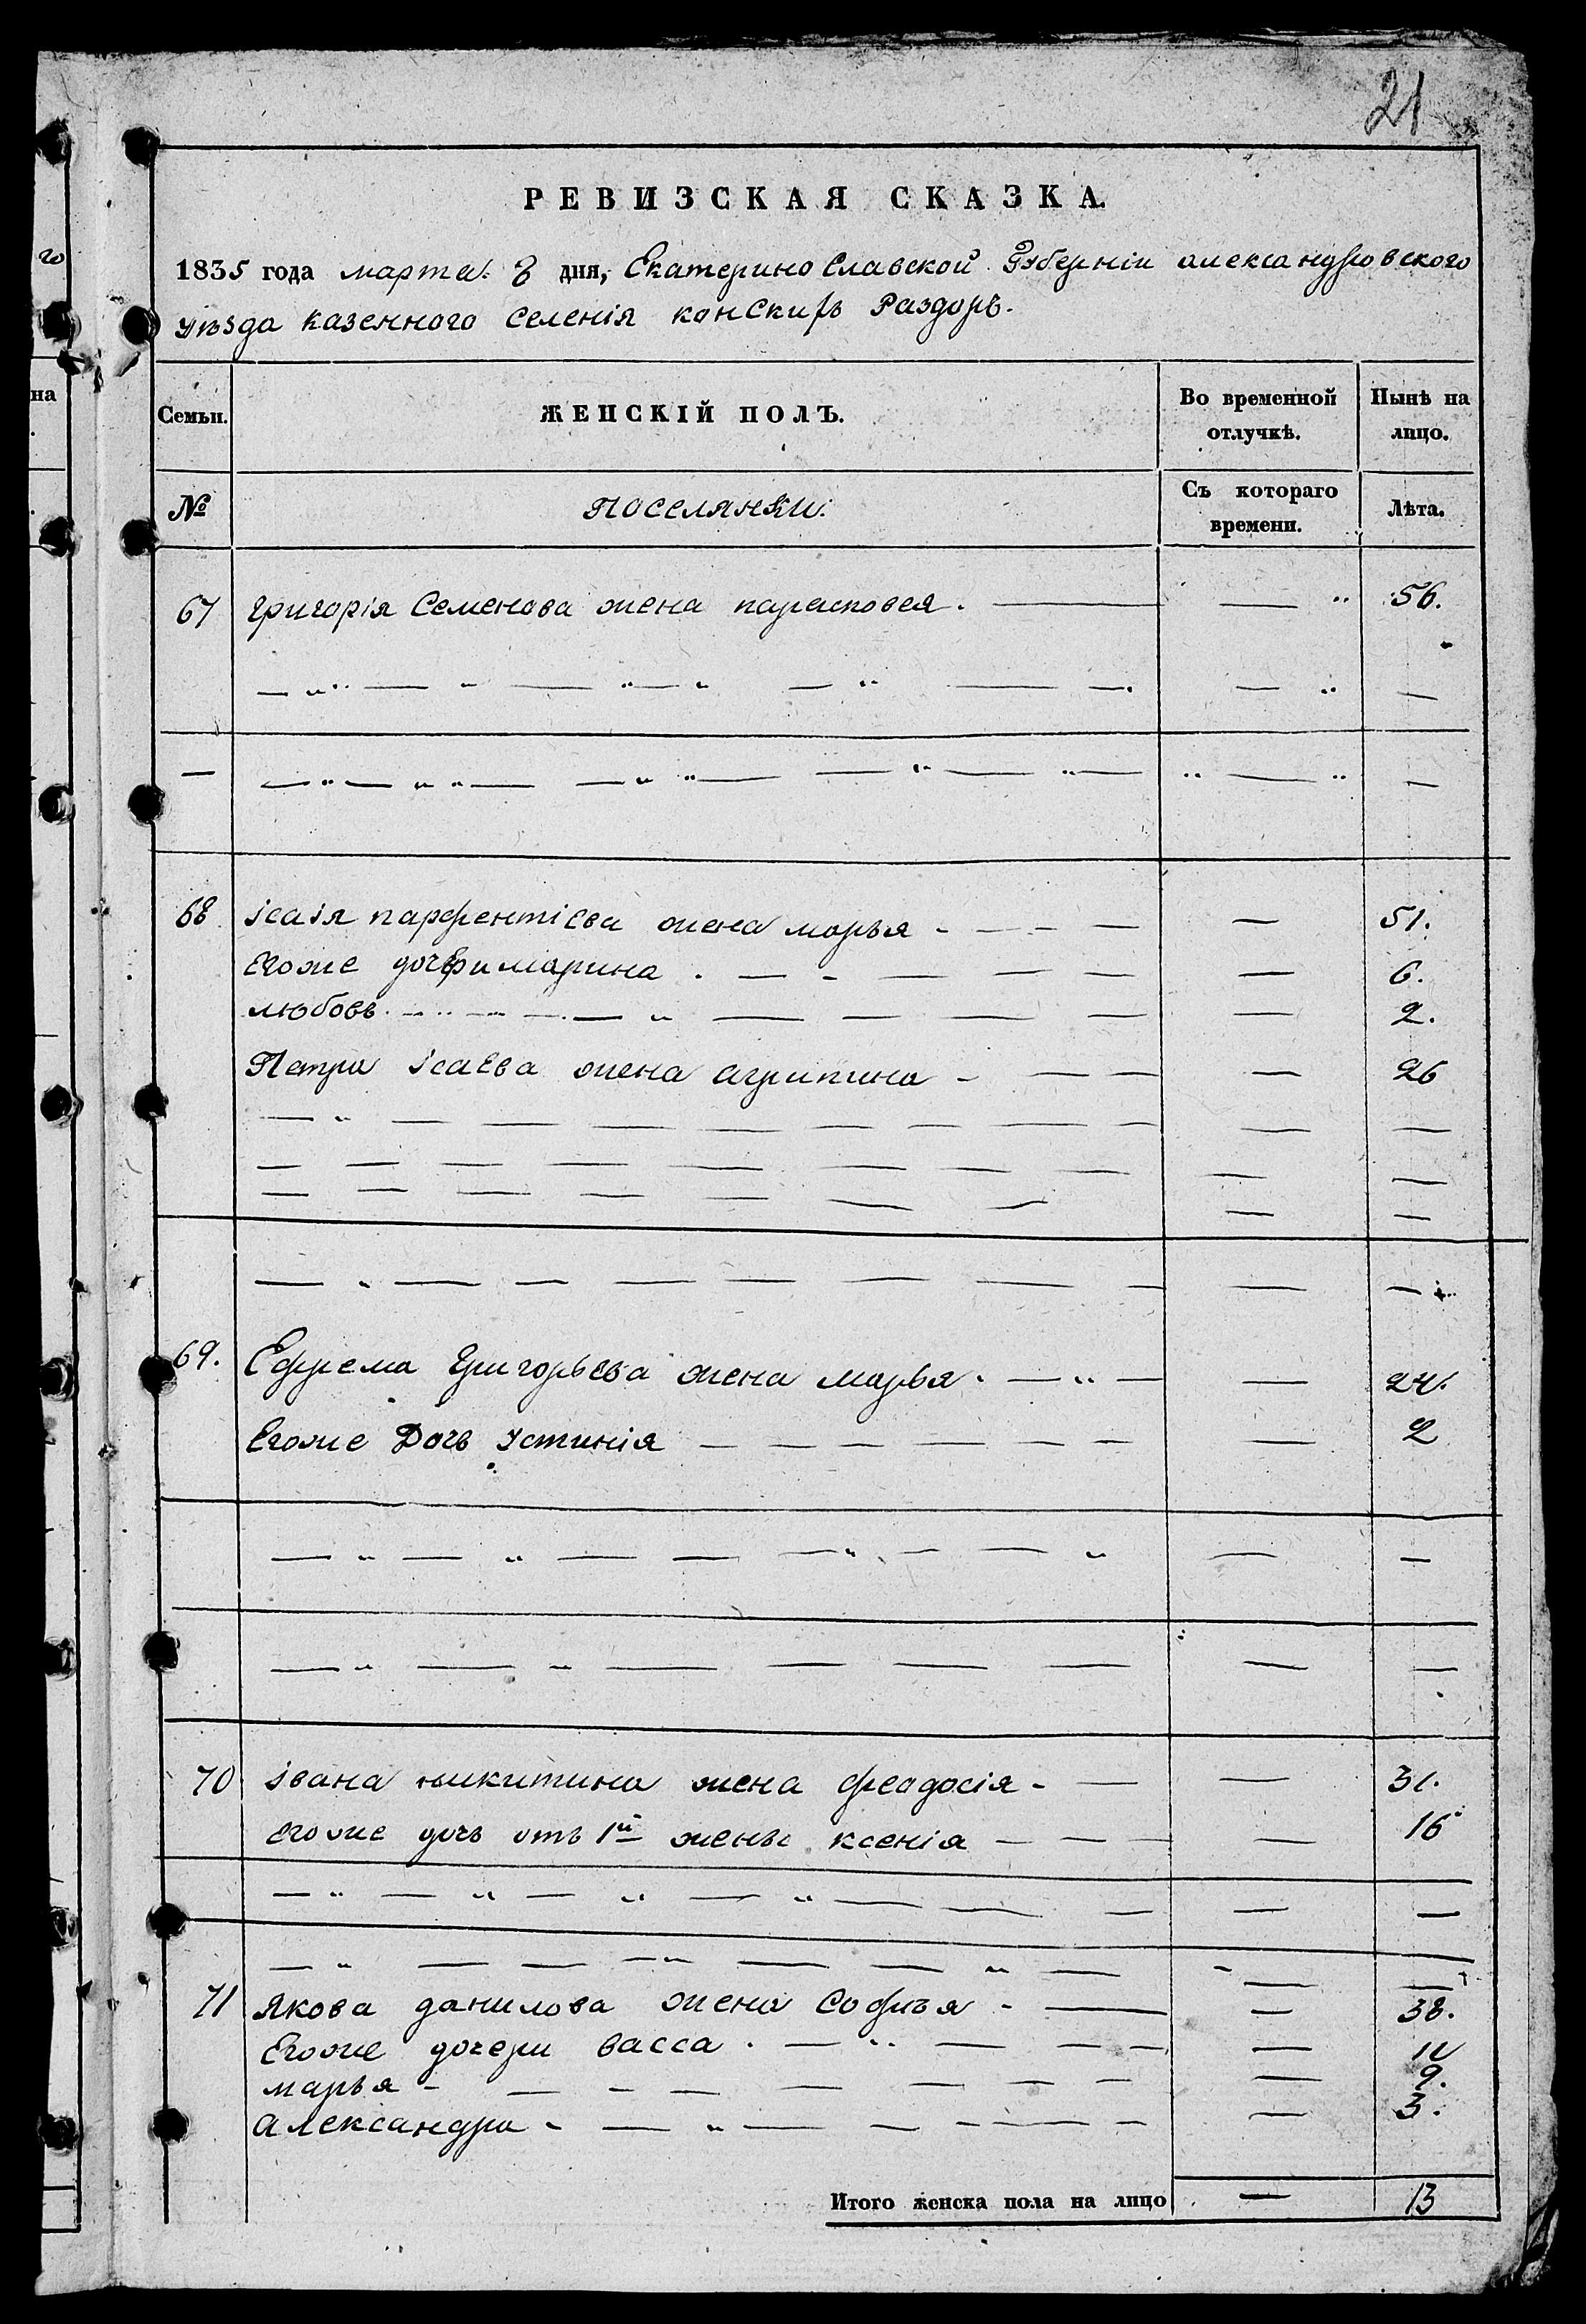 21
РЕВИЗСКАЯ СКАЗКА.
1835 года марта 8 дня, Екатеринославской Губерніи александровского
уѣзда казенного селенія конскихъ Раздоръ.
Семьи. ЖЕНСКІЙ ПОЛЪ. Во временной отлучкѣ. Нынѣ на лицо.
№ Поселянки. Съ котораго времени. Лѣта.
67 григорія Семенова жена парасковея. — 56.
68 ісаія парфентіева жена марья — 51.
Егоже дочери марина — 6.
любовь — 2.
Петра ісаева жена агрипина — 26
69. Ефрема григорьева жена марья — 24.
Егоже Дочь устинія — 2
70 івана никитина жена феодосія — 31.
егоже дочь отъ 1й жены ксенія — 16
71 якова данилова жена Софья — 38.
Егоже дочери васса —
марья — 9.
александра — 3.
Итого женска пола на лицо — 13
на